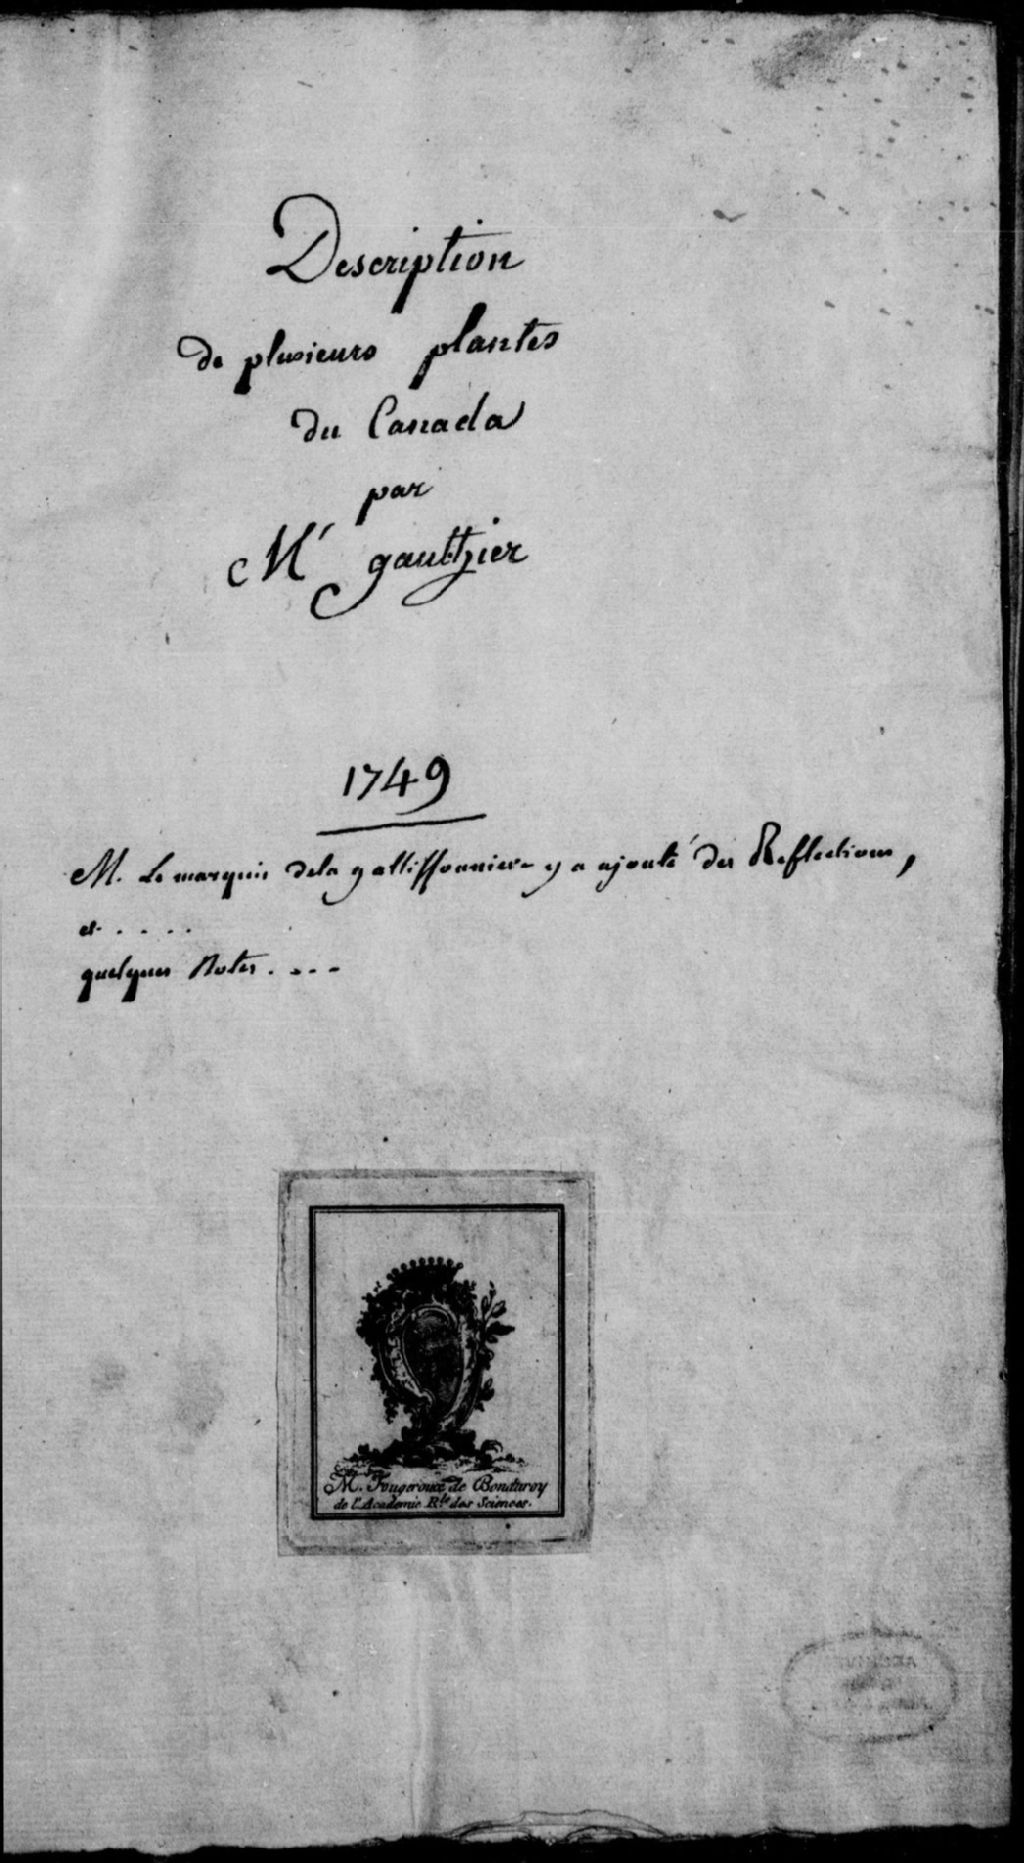 Description
de plusieurs plantes
du Canada
par
Mr gaulthier
1749
M. Le marquis dela gallissonniere y a ajouté des Reflections,
et . . . .
quelques Notes. . . .
M. Fougeroux de Bondaroy
de l'Academie Rle des Sciences.